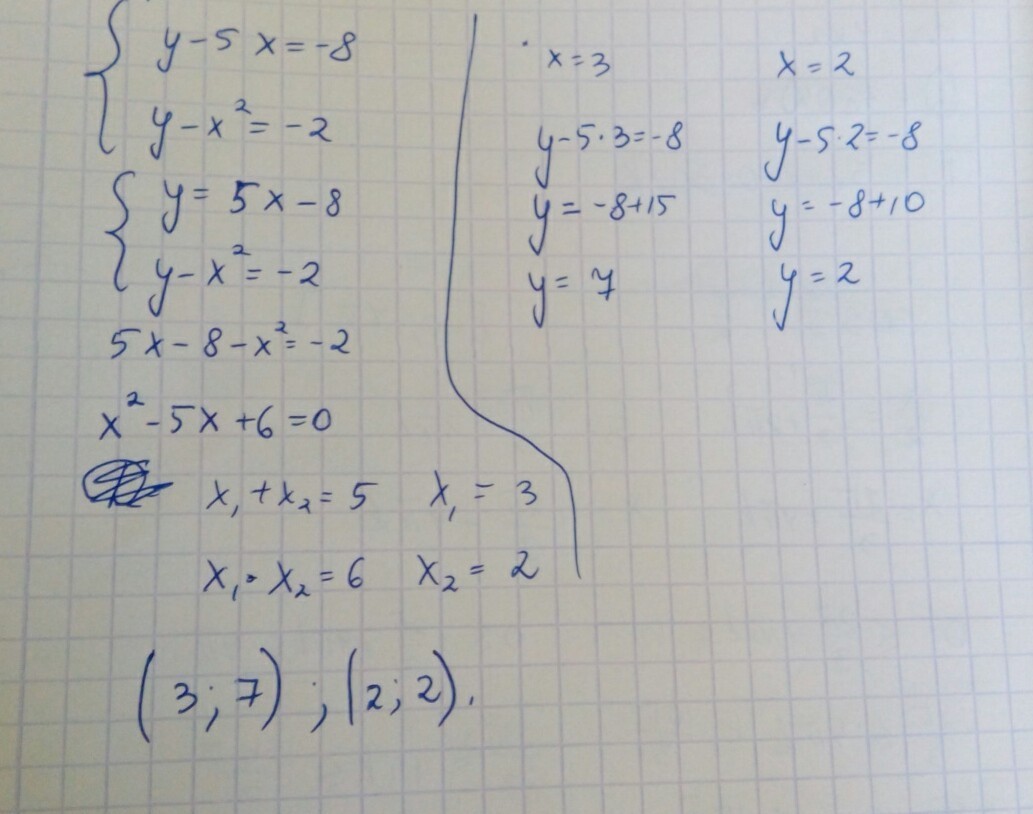 y-5x=-8
y-x²=-2
y=5x-8
y-x²=-2
5x-8-x²=-2
x²-5x+6=0
x₁+x₂=5 x₁=3
x₁·x₂=6 x₂=2
(3;7);(2;2).
x=3
y-5·3=-8
y=-8+15
y=7
x=2
y-5·2=-8
y=-8+10
y=2